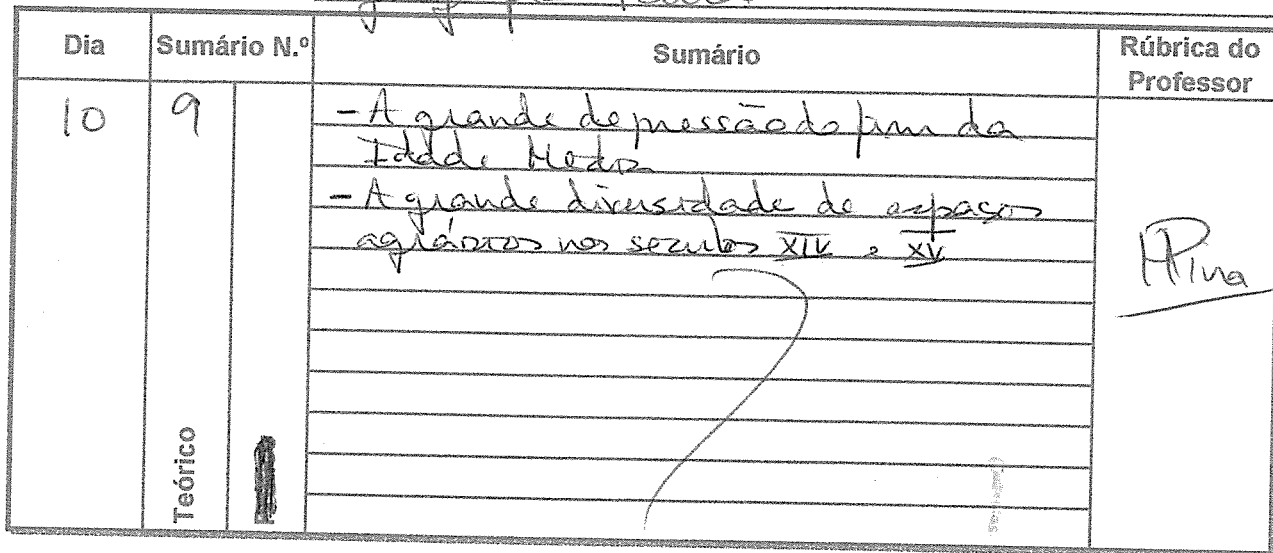 Dia Sumário N.º Sumário Rúbrica do Professor
10 9 - A grande depressão do fim da
Idade Média
- A grande diversidade de espaços
agrários nos seculos XIV e XV
HPina
Teórico